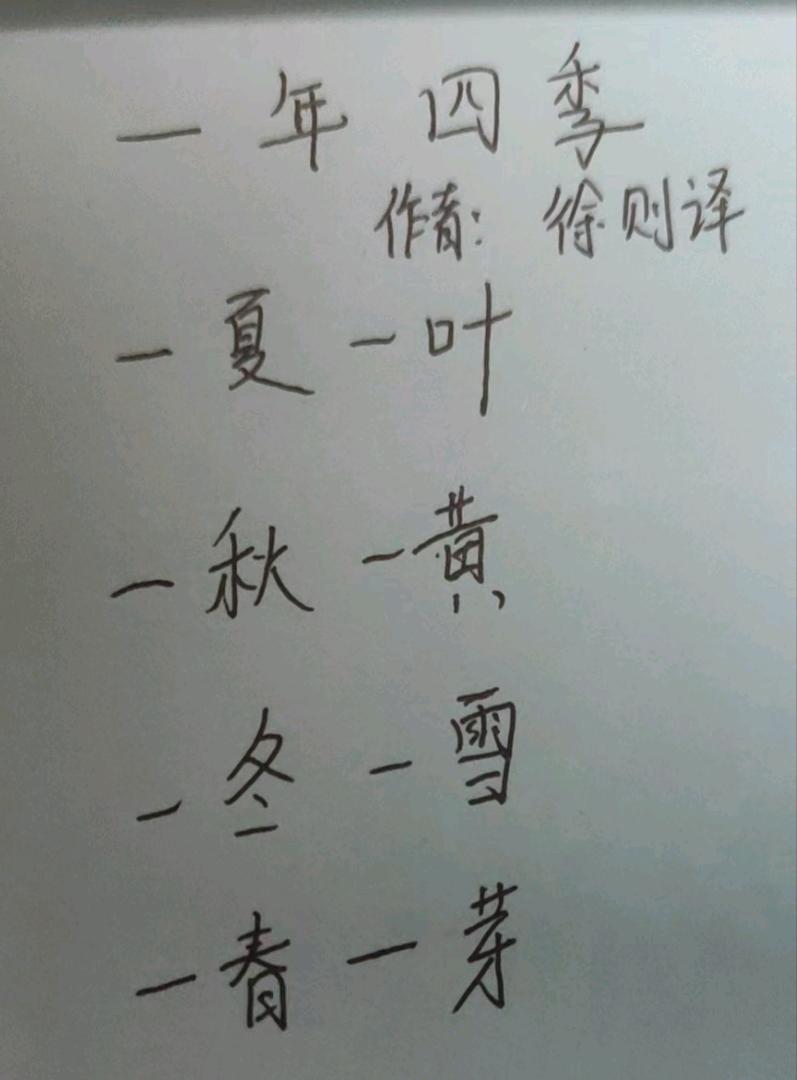 一年四季
作者：徐则译
一夏一叶
一秋一黄
一冬一雪
一春一芽